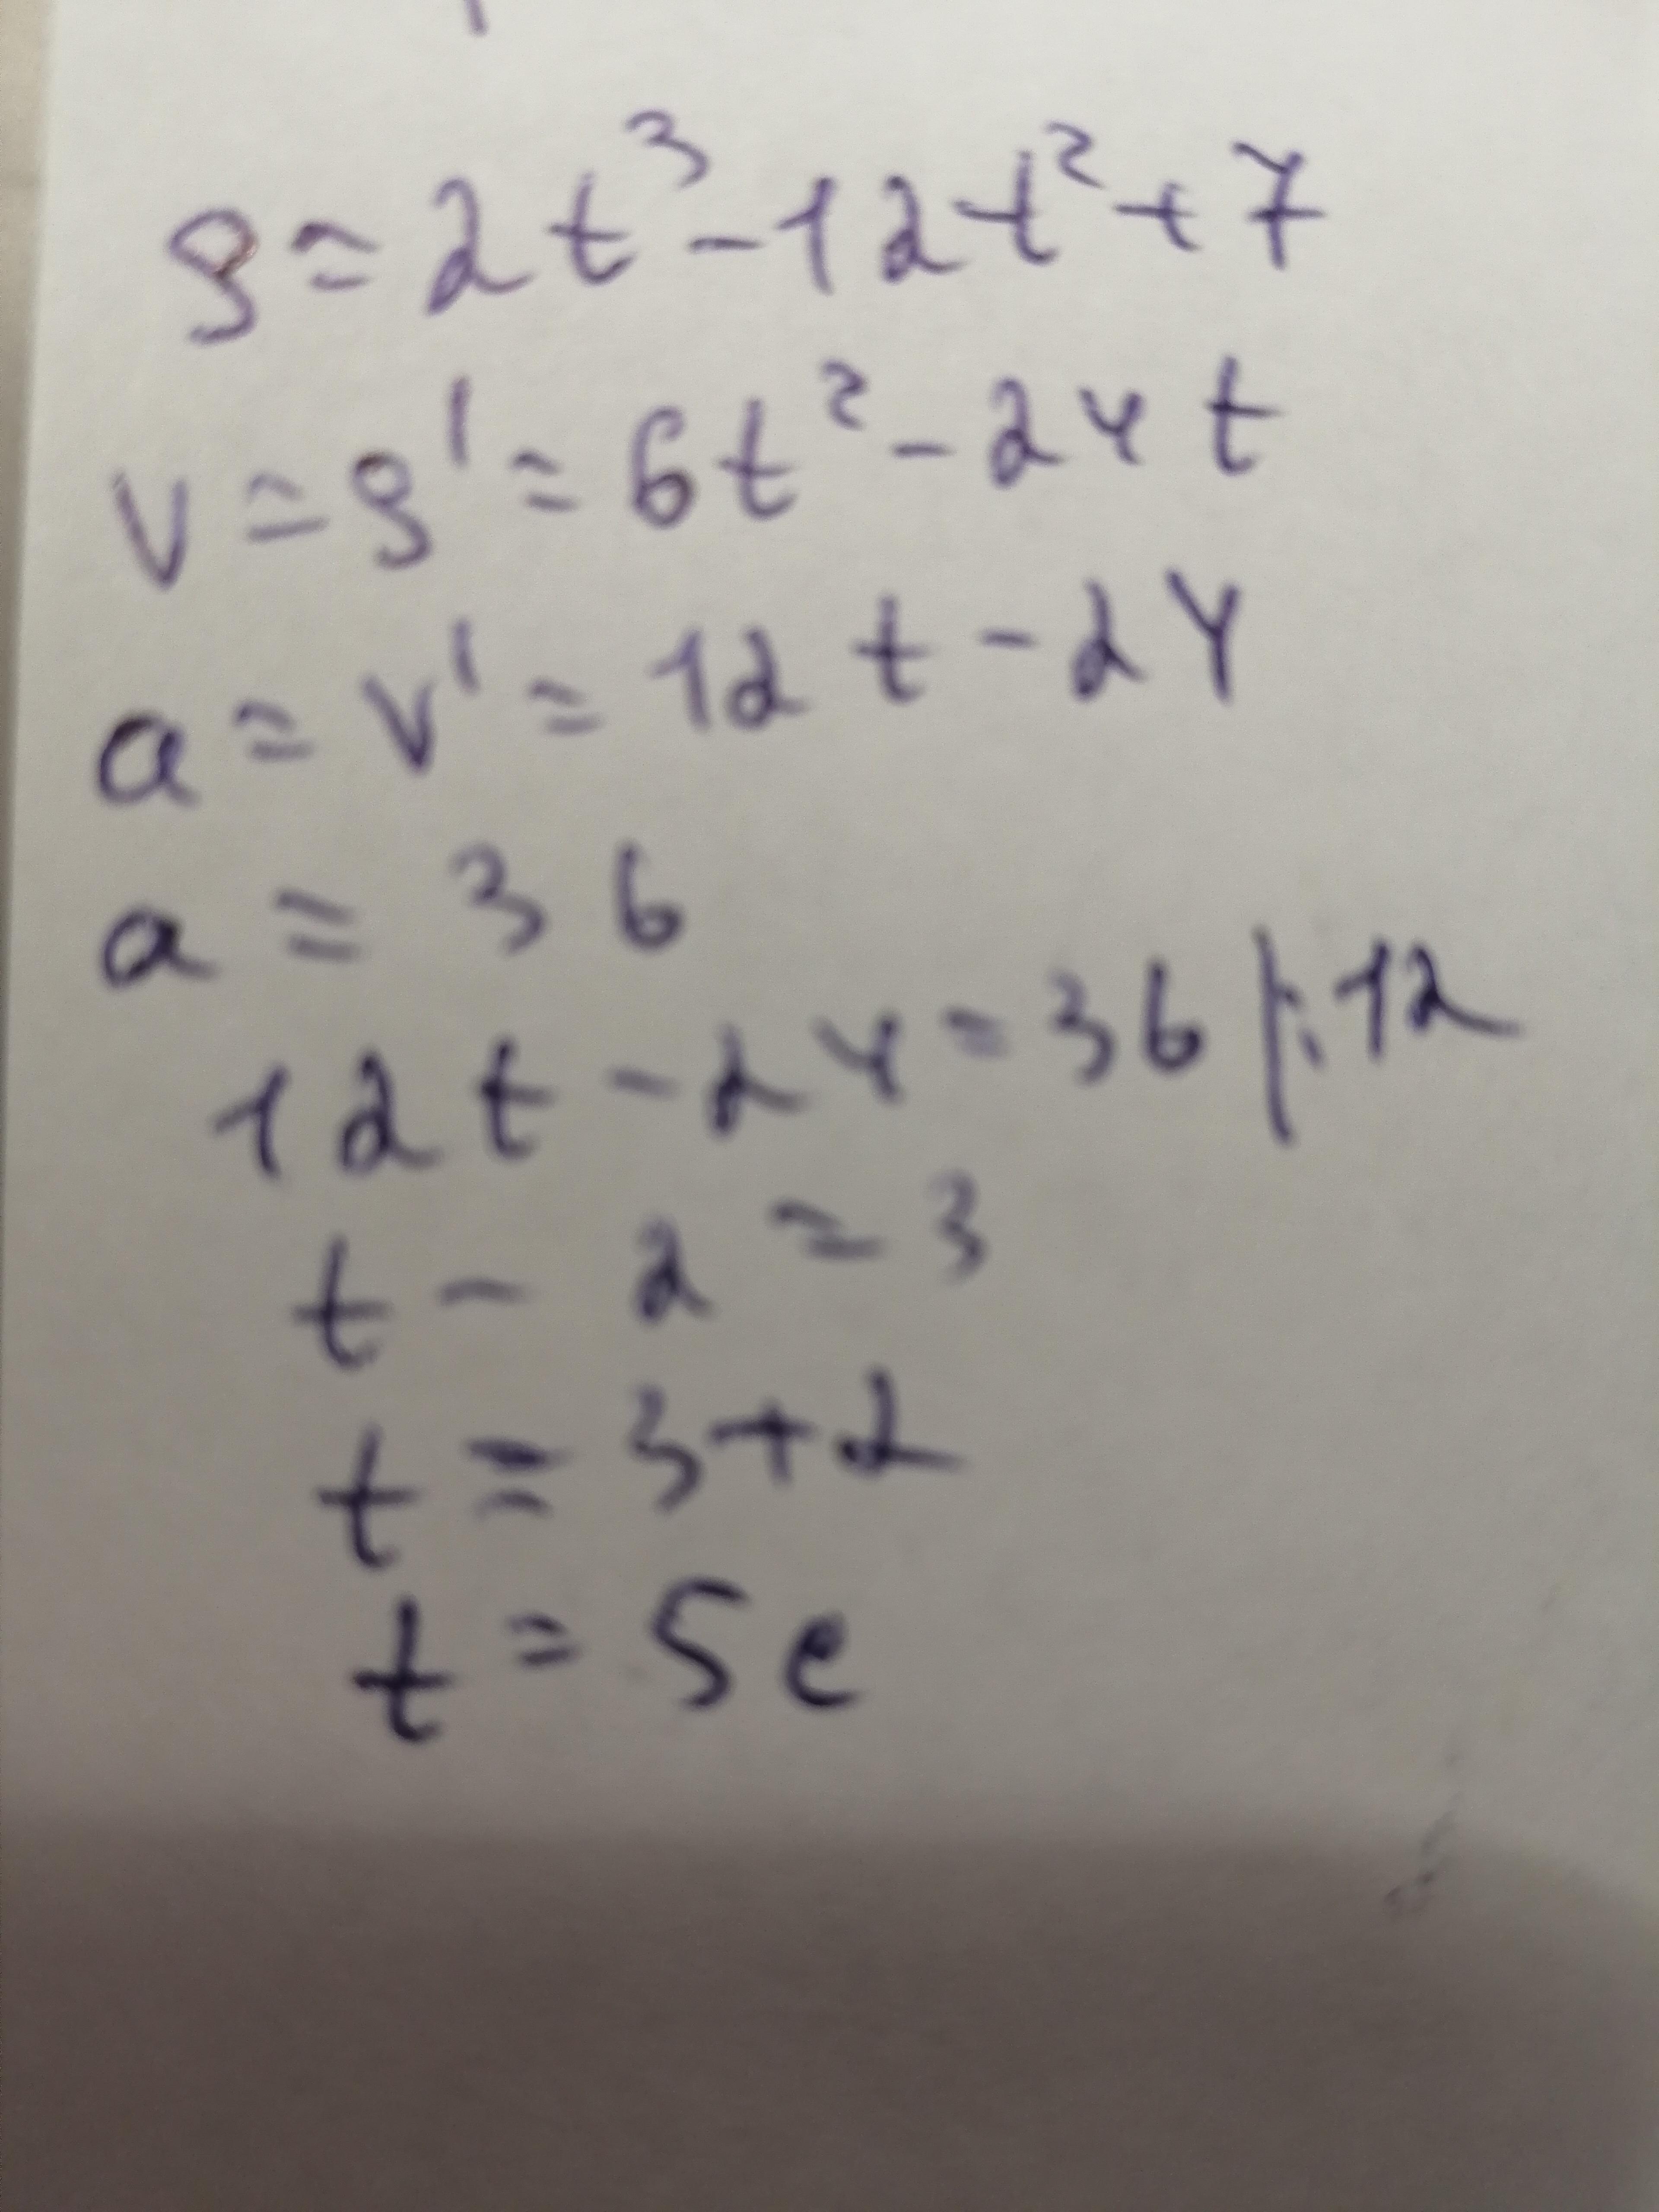 S = 2t³ - 12t² + 7
v = S' = 6t² - 24t
a = v' = 12t - 24
a = 36
12t - 24 = 36 |:12
t - 2 = 3
t = 3 + 2
t = 5c